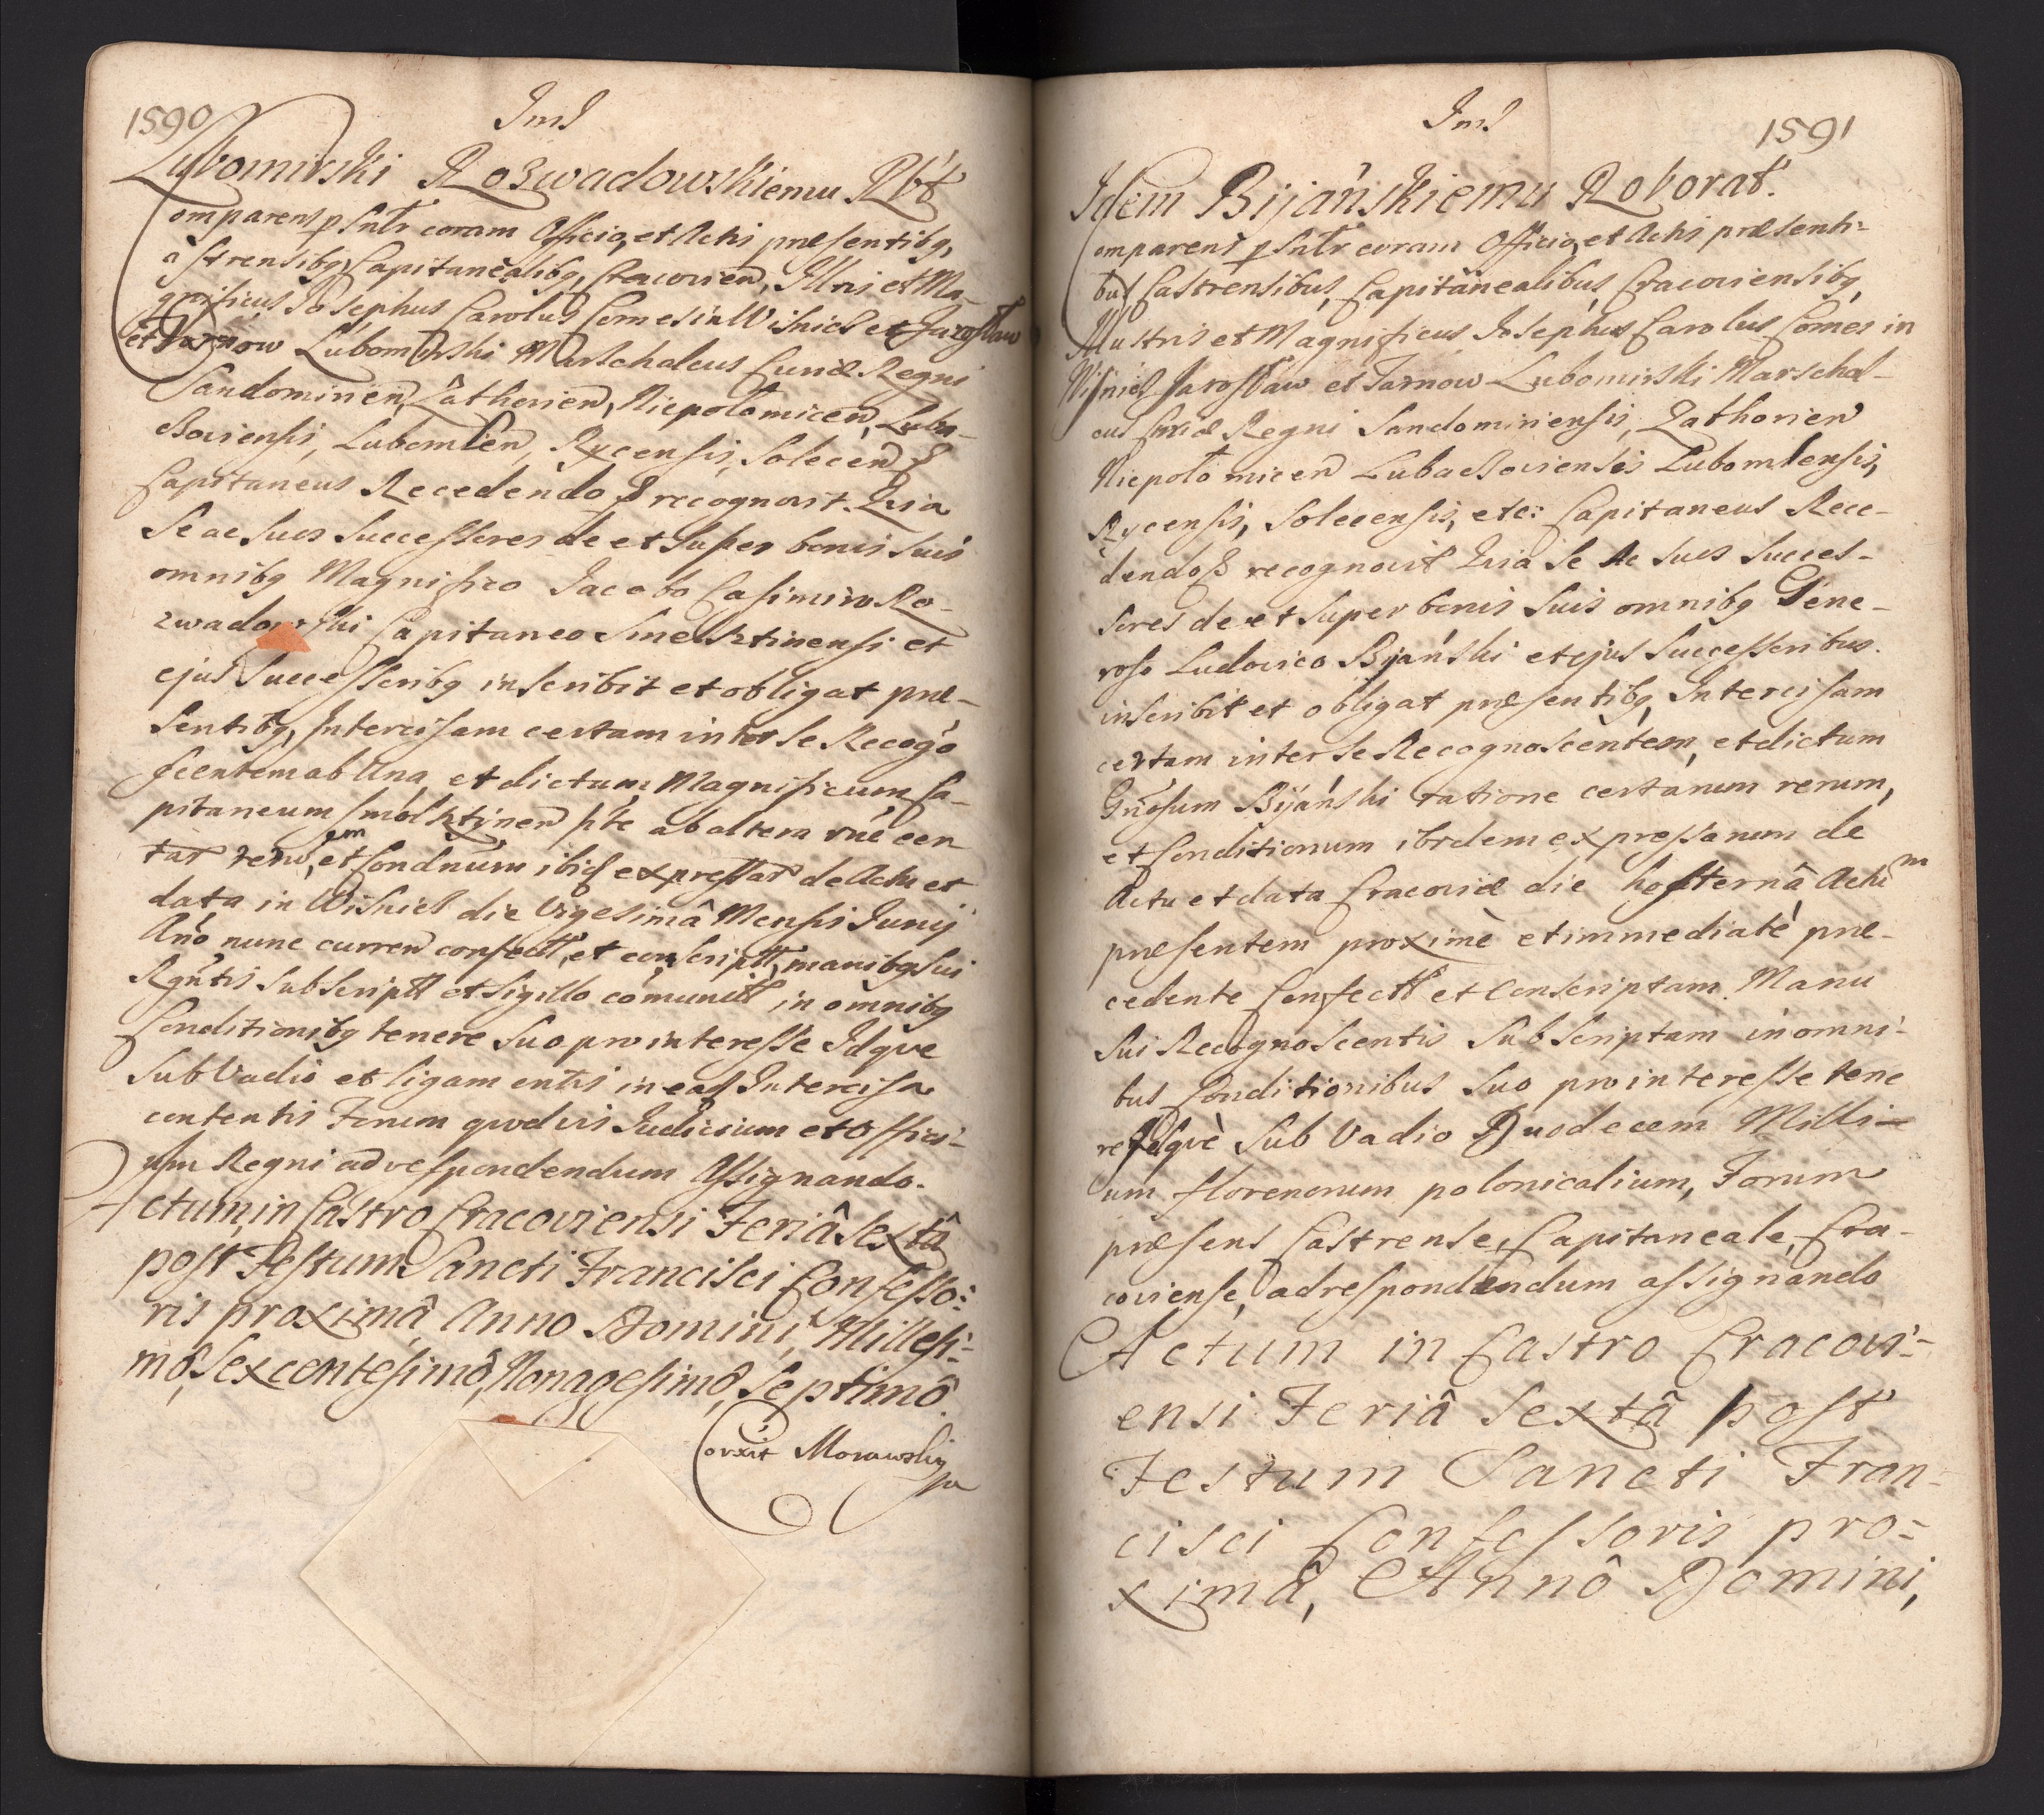 1590
Jnd
Lubomirski Rozwadowskiemu Rbt
Comparens psnlr coram Officio, et Actis præsentibg,
Castrensibg, Capitanealibg, Cracovien, Illris et Ma-
gnificus Josephus Carolus Comes in Wisnicz et Jaroslaw
et Tarnow Lubomirski Marschalcus Curiæ Regni
Sandomirien, Zathorien, Niepolomicen, Luba-
czoviensis, Lubomlen, Rycensis, Solecen
Capitaneus Recedendo recognovit. Quia
Se ac Suos Successores de et Super bonis Suis
omnibg Magnifico Jacobo Casimiro Ro-
zwadowski Capitaneo et
ejus Successoribg inscribit et obligat præ-
sentibg, Intercisam certam inter se Recogo
scentem ab Una, et dictum Magnificum Ca-
pitaneum pte ab altera rne cer
tar reru, et Condnum ibid expressar de Actu et
data in Wisnicz die Vigesimâ Mensis Junij
Ano nunc curren confectt, et conscriptt, manibg sui
Rgntis Subscriptt et Sigillo comunitt in omnibg
Conditionibg tenere Suo pro interesse Idqve
Sub Vadio et ligamentis in ead Intercisa
contentis Forum qvodvis Judicium et Offici-
um Regni ad respondendum Assignando.
Actum in Castro Cracoviensi Feriâ Sextâ
post Festum Sancti Francisci Confesso-
ris proximâ, Anno Domini, Millesi-
mô, Sexcentesimô, Nonagesimô, Septimô.
Corxit Morawsky
Jnd
1591
Idem Bijánskiemu Roborat.
Comparens psnlr coram Officio, et Actis præsenti-
bus Castrensibus, Capitanealibus, Cracoviensibg
Illustris et Magnificus Josephus Carolus Comes in
Wisnicz Jaroslaw et Tarnow Lubomirski Marschal-
cus Curiæ Regni Sandomiriensis, Zathorien
Niepolomicen Lubaczoviensis Lubomlensis,
Rycensis, Solecensis, etc: Capitaneus Rece-
dendo recognovit Quia Se Ac Suos Succes-
sores de et super bonis Suis omnibg Gene-
roso Ludovico Bijánski et ejus Successoribus.
inscribit et obligat præsentibg, Intercisam
certam inter se Recognoscentem, et dictum
Gnosum Bijánski ratione certarum rerum,
et Conditionum ibidem expressarum de
Actu et data Cracoviæ die hesternâ Actum
præsentem proximè et immediatè præ-
cedente Confectt et Conscriptam. Manu
Sui Recognoscentis Subscriptam in omni-
bus Conditionibus Suo pro interesse tene
re Idqvè Sub Vadio Duodecem Milli-
um florenorum polonicalium, Forum
præsens Castrense, Capitaneale, Cra-
coviense, ad respondendum assignando
Actum in Castro Cracovi-
ensi Feriâ Sextâ post
Festum Sancti Fran-
cisci Confessoris pro-
ximâ, Annô Domini,